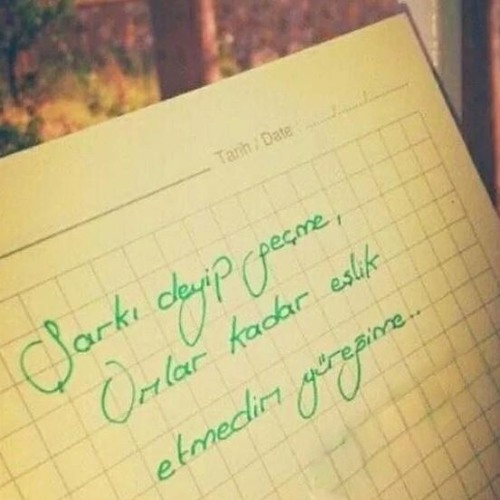 Tarih / Date : ....../....../............
Şarkı deyip geçme,
Onlar kadar eşlik
etmedin yüreğime..